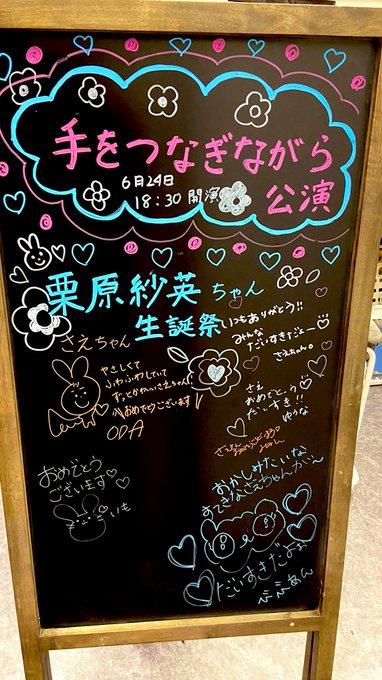 手をつなぎながら
6月24日
18:30 開演
公演
栗原紗英ちゃん
生誕祭
いつもありがとう!!
みんな
だいすきだよ〜♡
さえちゃん。
さえちゃん
やさしくて
ふわふわしていて
ずっとかわいいさえちゃん
おめでとうございます
ODA
さえ
おめでとう♡
だいすき!!
ゆうな
おめでとう
ございます♡
いも
おかしみたいな
すてきなさえちゃんが〜
だいすきだよぉ
ふふあん